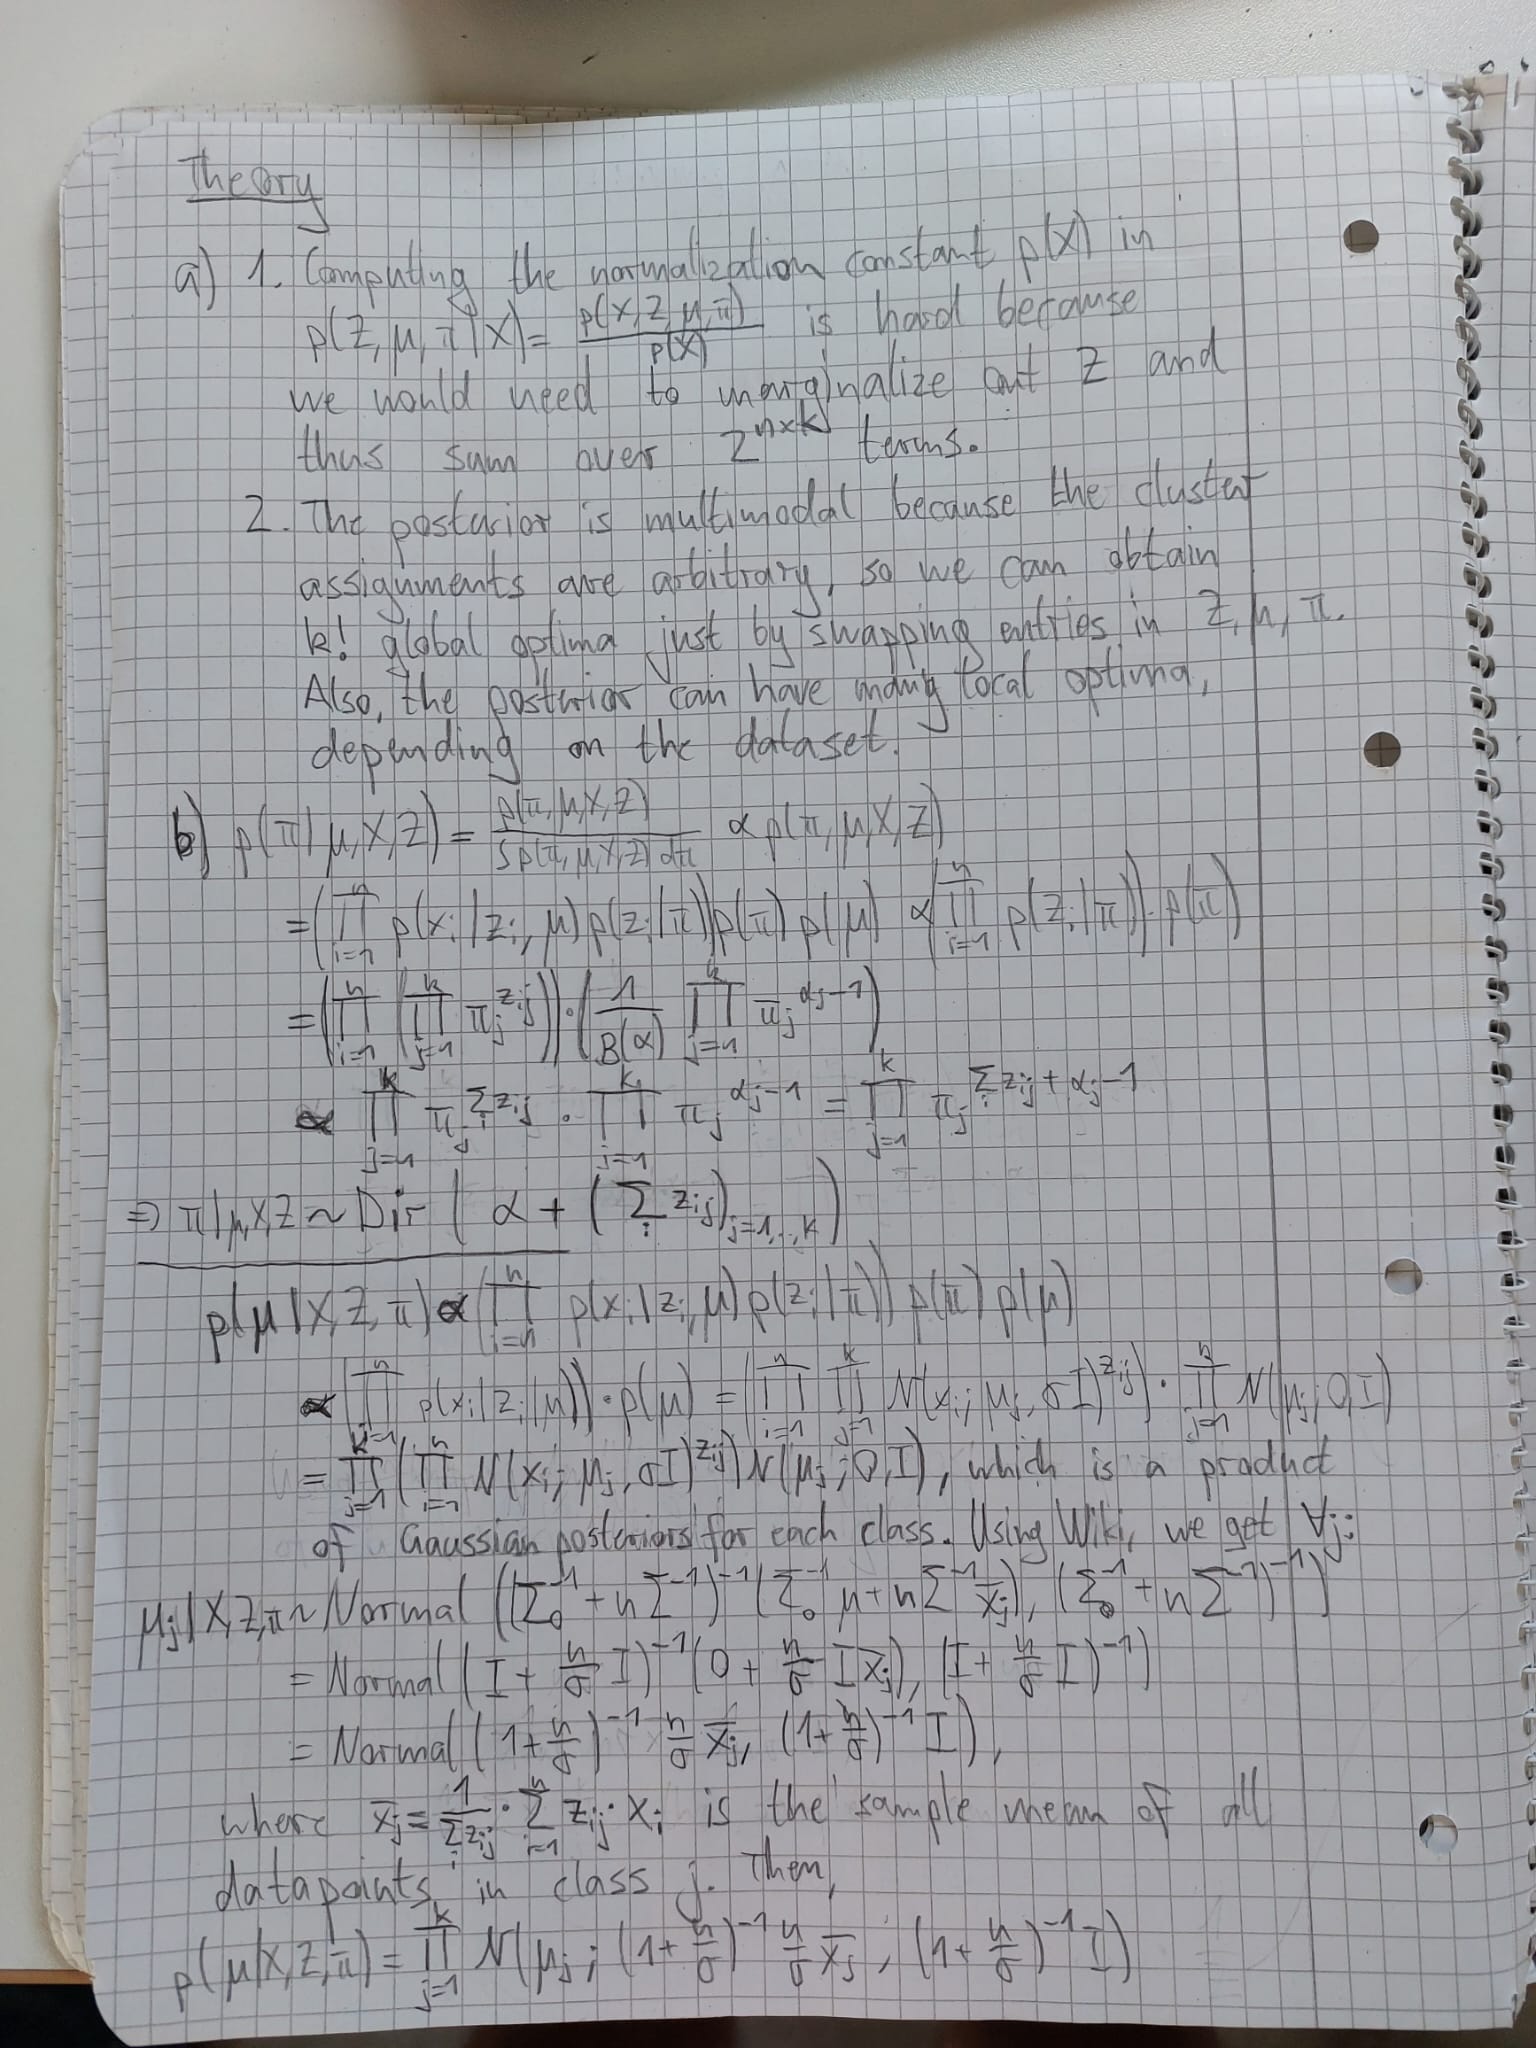 Theory
a) 1. Computing the normalization constant p(X) in
p(Z, μ, π | X) = p(X, Z, μ, π) / p(X) is hard because
we would need to marginalize out Z and
thus sum over 2^{n×k} terms.
2. The posterior is multimodal because the cluster
assignments are arbitrary, so we can obtain
k! global optima just by swapping entries in Z, μ, π.
Also, the posterior can have many local optima,
depending on the dataset.
b) p(π | μ, X, Z) = p(π, μ, X, Z) / ∫ p(π, μ, X, Z) dπ ∝ p(π, μ, X, Z)
= (∏_{i=1}^{n} p(x_i | z_i, μ) p(z_i | π)) p(π) p(μ) ∝ (∏_{i=1}^{n} p(z_i | π)) · p(π)
= (∏_{i=1}^{n} (∏_{j=1}^{k} π_j^{z_{ij}})) · (1/B(α) ∏_{j=1}^{k} π_j^{α_j - 1})
∝ ∏_{j=1}^{k} π_j^{∑_i z_{ij}} · ∏_{j=1}^{k} π_j^{α_j - 1} = ∏_{j=1}^{k} π_j^{∑_i z_{ij} + α_j - 1}
⇒ π | μ, X, Z ~ Dir (α + (∑_i z_{ij})_{j=1,..,k})
p(μ | X, Z, π) ∝ (∏_{i=1}^{n} p(x_i | z_i, μ) p(z_i | π)) p(π) p(μ)
∝ (∏_{i=1}^{n} p(x_i | z_i, μ)) · p(μ) = (∏_{i=1}^{n} ∏_{j=1}^{k} N(x_i; μ_j, σI)^{z_{ij}}) · ∏_{j=1}^{k} N(μ_j; 0, I)
= ∏_{j=1}^{k} (∏_{i=1}^{n} N(x_i; μ_j, σI)^{z_{ij}}) N(μ_j; 0, I), which is a product
of Gaussian posteriors for each class. Using Wiki, we get ∀j:
μ_j | X, Z, π ~ Normal ((Σ_0^{-1} + nΣ^{-1})^{-1} (Σ_0^{-1} μ + nΣ^{-1} x̄_j), (Σ_0^{-1} + nΣ^{-1})^{-1})
= Normal (I + n/σ I)^{-1} (0 + n/σ I x̄_j), (I + n/σ I)^{-1})
= Normal (1 + n/σ)^{-1} n/σ x̄_j, (1 + n/σ)^{-1} I),
where x̄_j = 1/∑_i z_{ij} · ∑_{i=1}^{n} z_{ij} · x_i is the sample mean of all
datapoints in class j. Then,
p(μ | X, Z, π) = ∏_{j=1}^{k} N(μ_j; (1 + n/σ)^{-1} n/σ x̄_j, (1 + n/σ)^{-1} I)